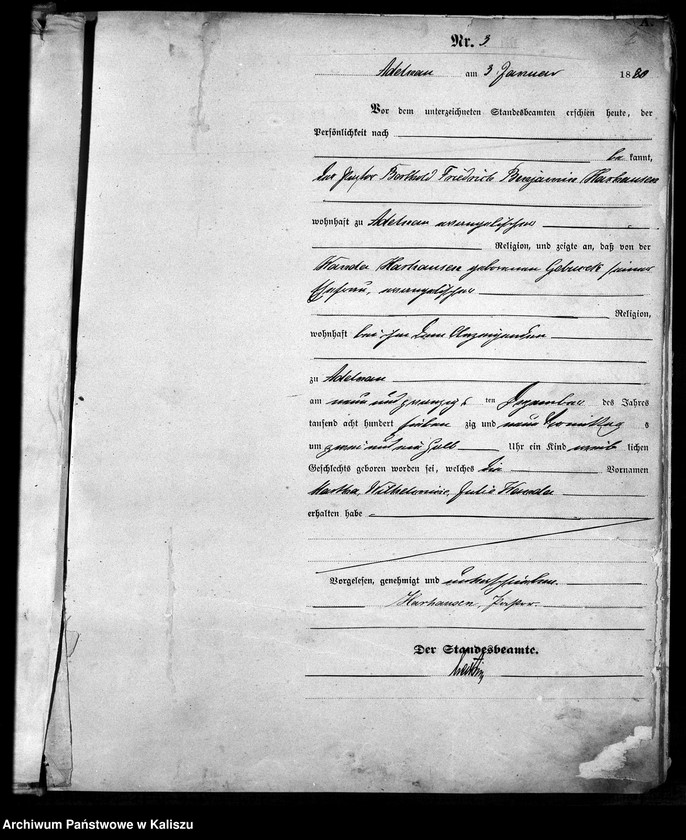 A.
Nr. 3
Adelnau am 3 Januar 1880
Vor dem unterzeichneten Standesbeamten erschien heute, der
Persönlichkeit nach
be kannt,
der Pastor Berthold Friedrich Benjamin Harhausen
wohnhaft zu Adelnau evangelischer
Religion, und zeigte an, daß von der
Wanda Harhausen geborenen seiner
Ehefrau, evangelischer
Religion,
wohnhaft bei ihm dem Anzeigenden
zu Adelnau
am neun und zwanzigs ten Dezember des Jahres
tausend acht hundert sieben zig und neun Vormittag s
um zwei und ein halb Uhr ein Kind weib lichen
Geschlechts geboren worden sei, welches die Vornamen
Martha, Wilhelmine, Julie Wanda
erhalten habe
Vorgelesen, genehmigt und unterschrieben.
Harhausen, Pastor.
Der Standesbeamte.
Archiwum Państwowe w Kaliszu